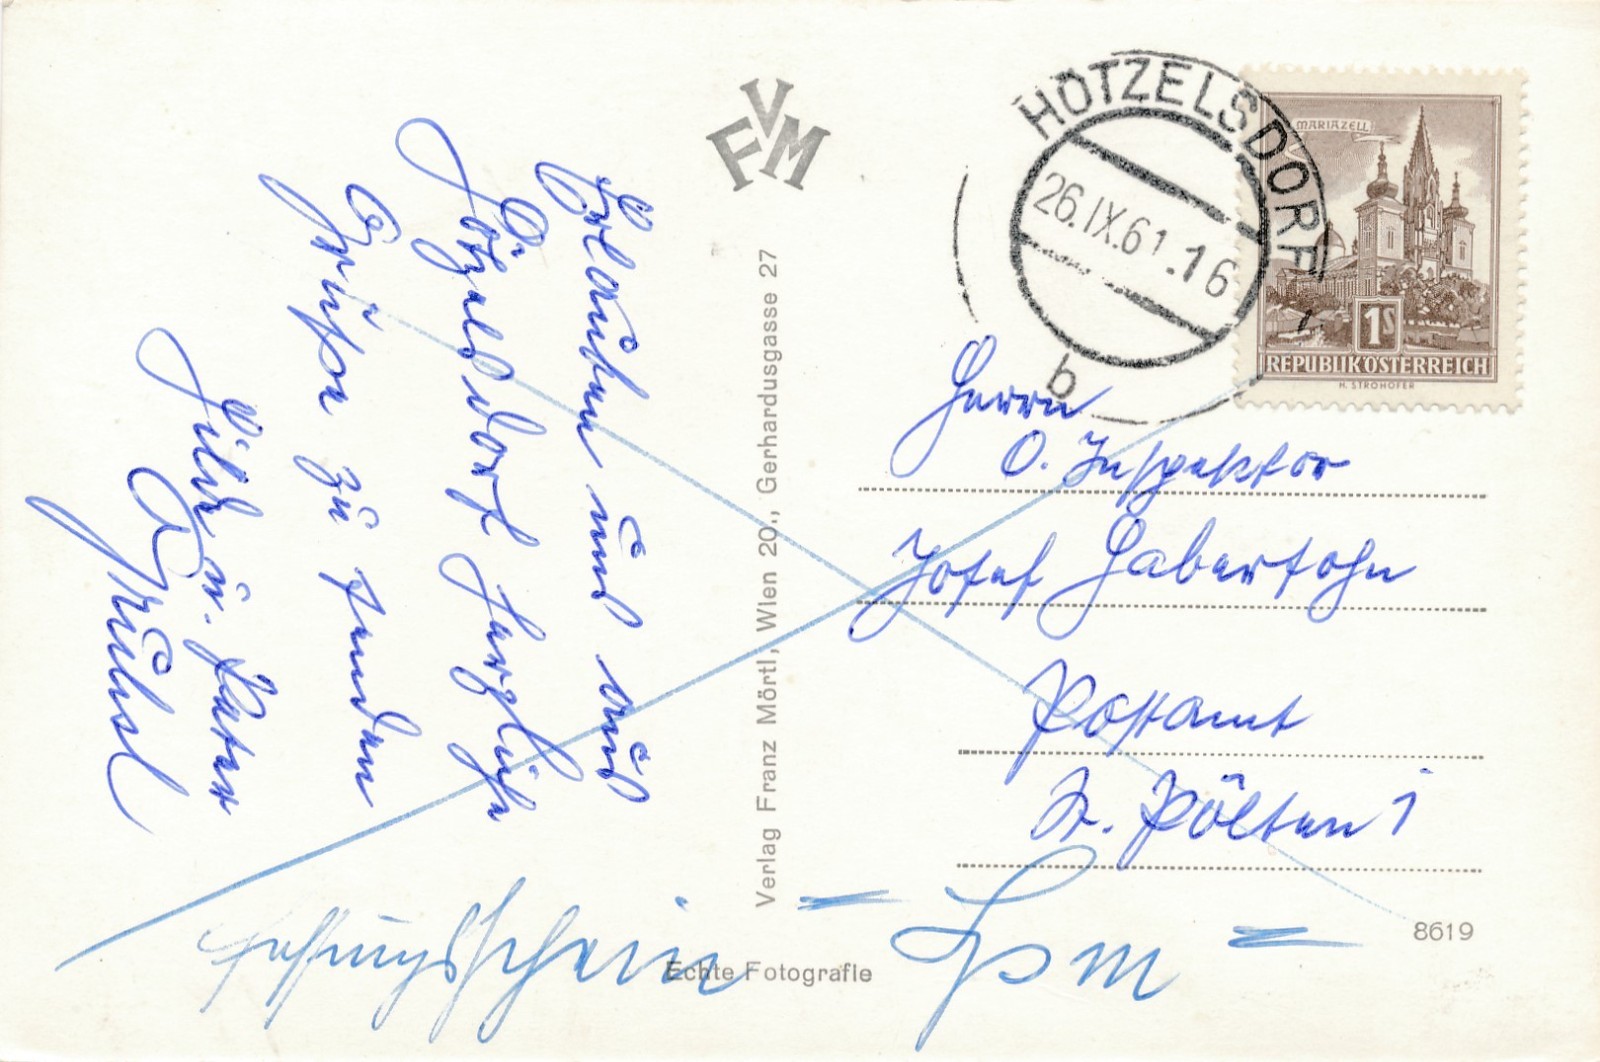 Erlauben uns aus
Hötzelsdorf herzliche
Grüße zu senden
Hilde u. Peter
FVM
Verlag Franz Mörtl, Wien 20., Gerhardusgasse 27
HÖTZELSDORF
26.IX.61.16
b
MARIAZELL
1S
REPUBLIK ÖSTERREICH
H. STROHOFER
Herrn
O. Inspektor
Josef Habersohn
Postamt
St. Pölten 1
8619
Echte Fotografie